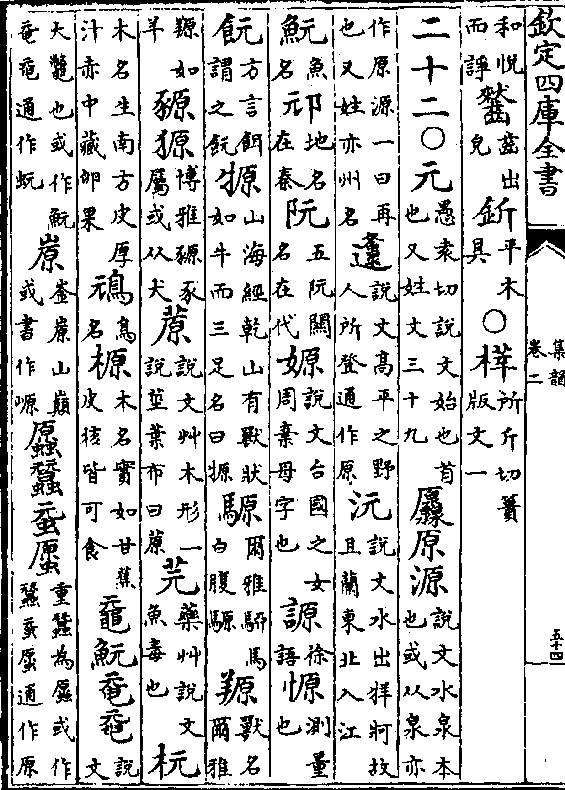 欽定四庫全書
集韻
卷二
五十四
和悅而諍 齒出皃釿平木具○所斤切簀版文一
二十二○元愚袁切說文始也首也又姓文三十九厵原源說文水泉本也或从泉亦
作原源一曰再也又姓亦州名邍說文高平之野人所登通作原沅說文水出牂牁故且蘭東北入江
魭魚名邧地名在秦阮五阮關名在代嫄說文台國之女周棄母字也謜徐語測量也
方言餌謂之山海經乾山有獸狀如牛而三足名曰騵爾雅駵馬白腹騵羱獸名爾雅
羱如羊豲獂博雅豲豕屬或从犬蒝說文艸木形一說莖葉布曰蒝芫藥艸說文魚毒也杬
木名生南方皮厚汁赤中藏卵果鳥名榞木名實如甘蕉皮核皆可食黿魭說文
大鼈也或作魭通作蚖山巔或書作重蠶為或作通作原